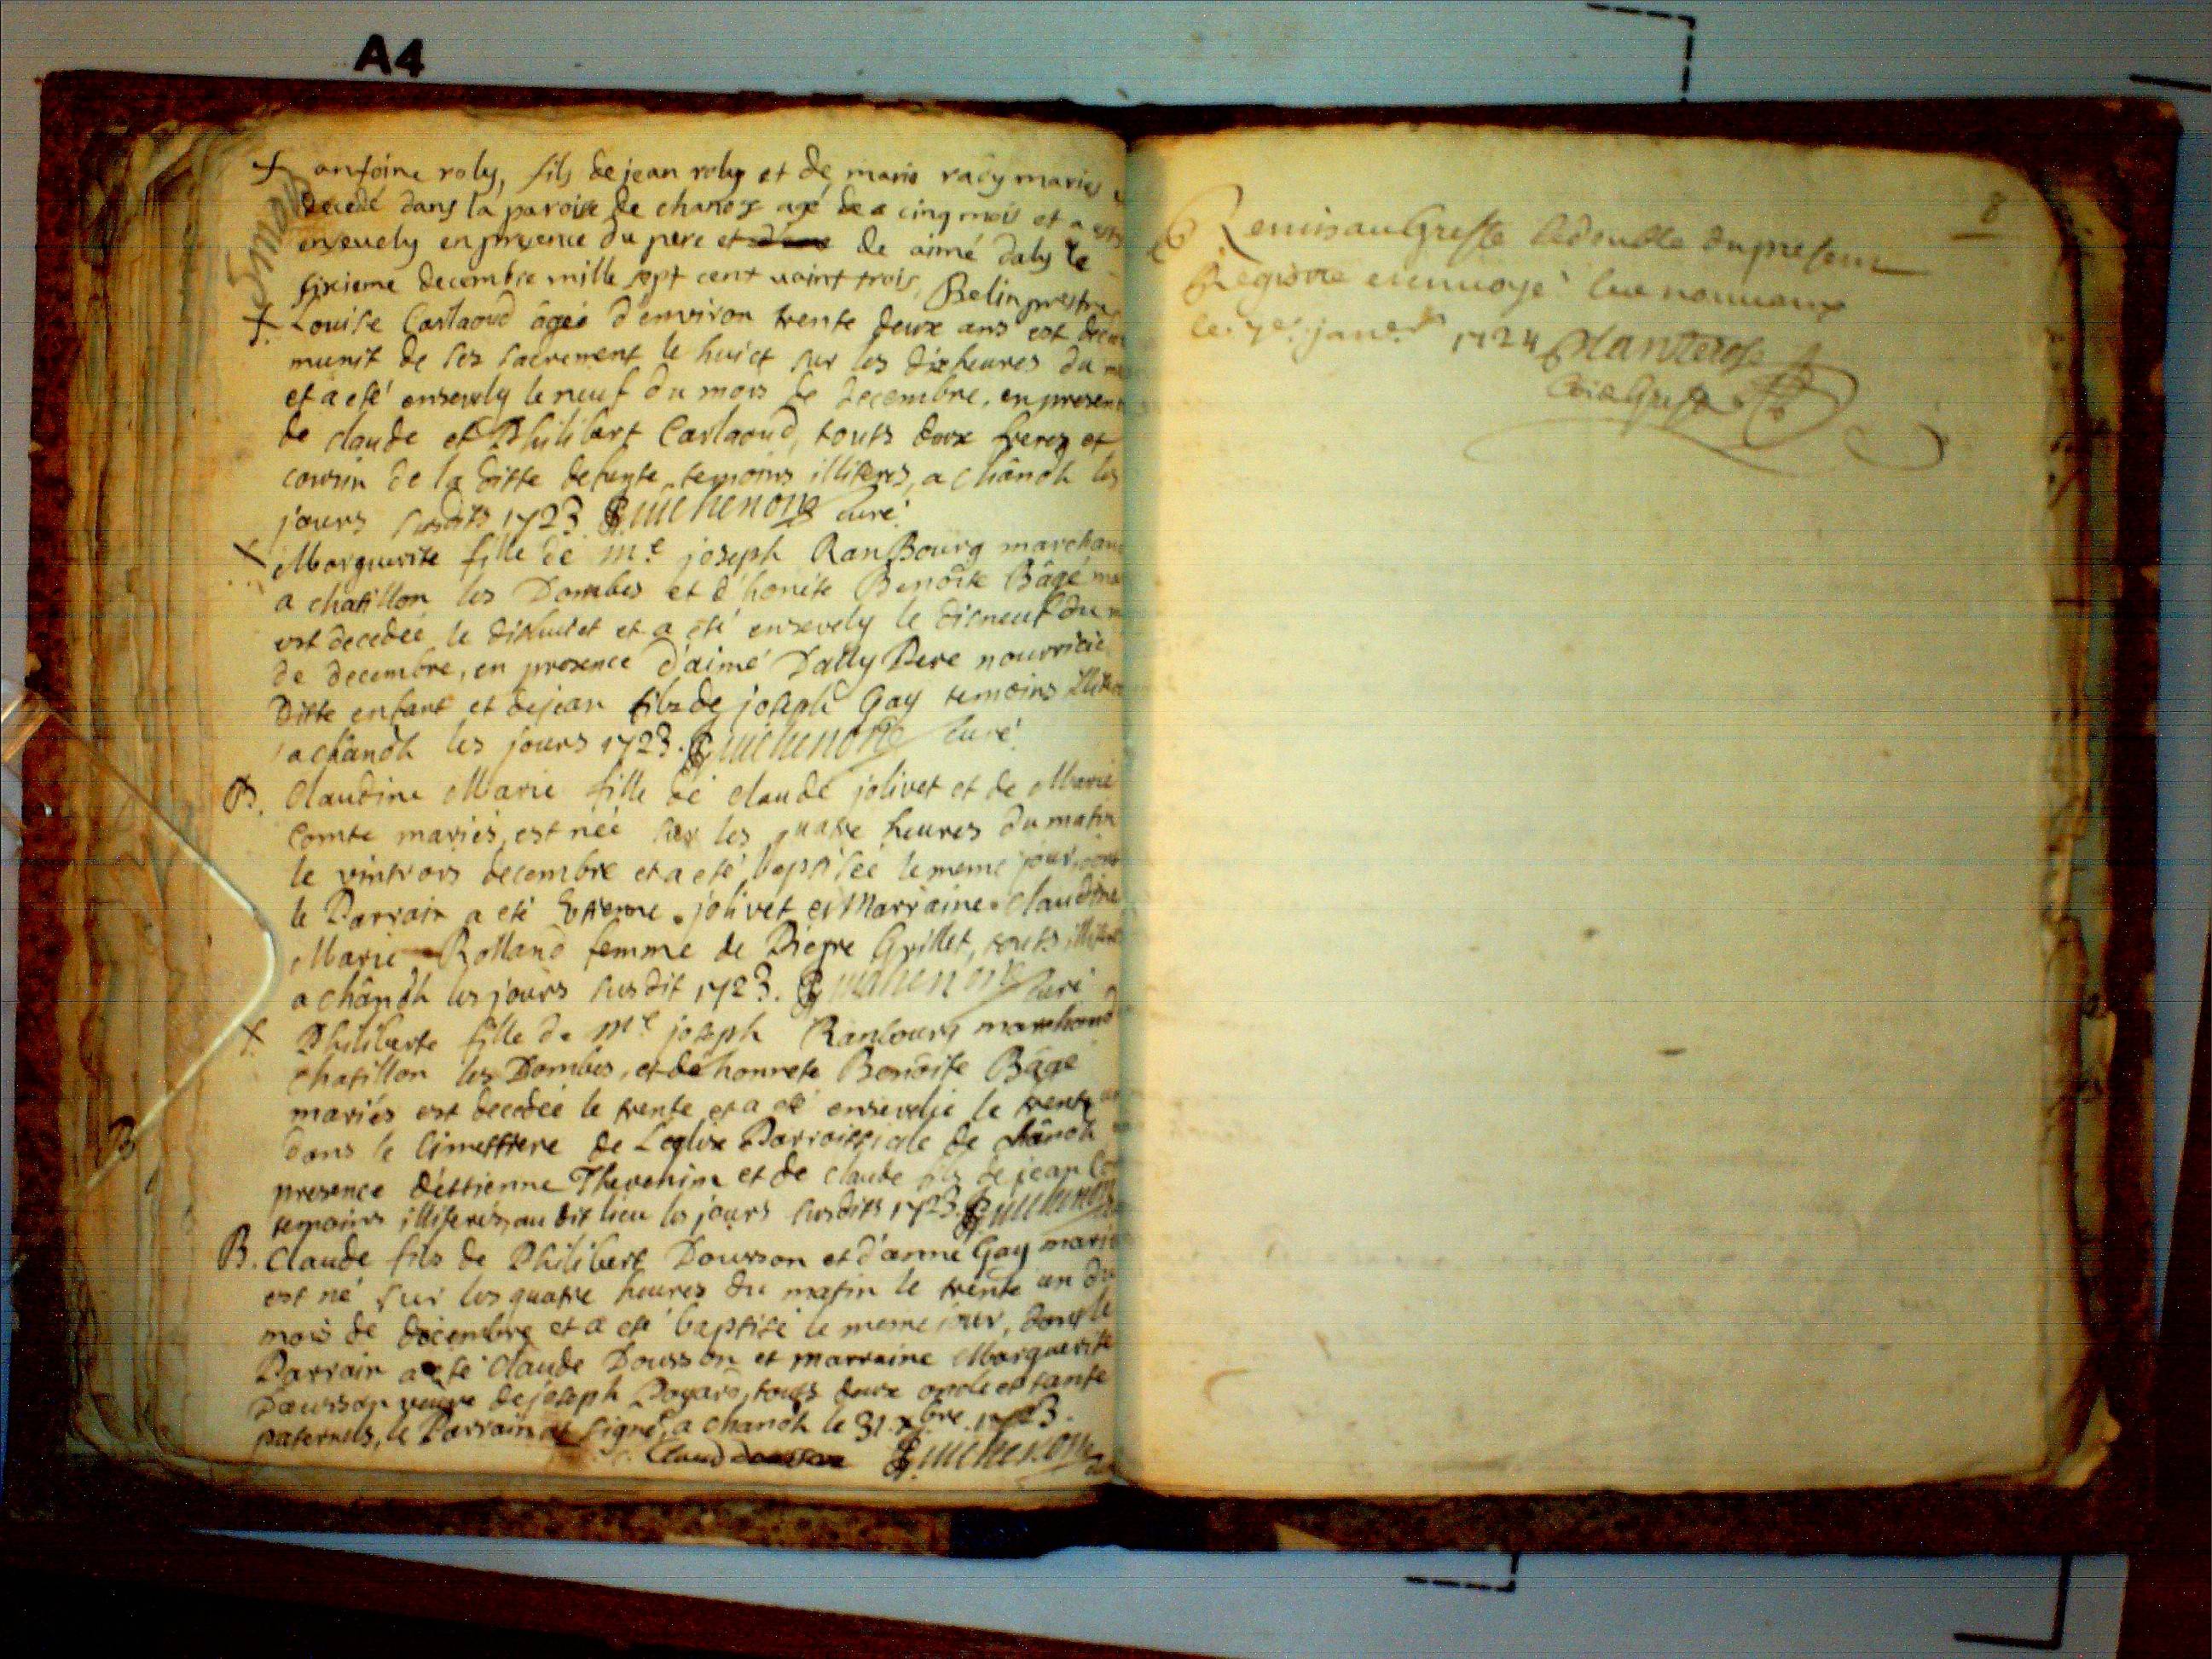 A4
+ antoine roly, fils de jean roly et de marie racy mariés
decedé dans la paroise de chanox agé de cinq mois et a
5 mois
ensevely en presence du pere et de aimé daly le
sixieme decembre mille sept cent vaint trois, Belin prestre
+ Louise Carlaoud âgée d'environ trente deux ans est
munit de ses sacrement le huict sur les dix heures du
et a eté ensevely le neuf du mois de decembre, en presen
de claude et Philibert Carlaoud, touts deux freres et
cousin de la ditte defunte temoins illiteres, a chânoh les
jours susdits 1723. Guichenon curé
+ Marguerite fille de me joseph RanBourg marchan
a chatillon les Dombes et d'honéte Benôite Bâgé ma
est decedée le dixhuict et a eté ensevely le dixneuf du
de decembre, en presence d'aimé Dally Pere nourricie
Ditte enfant et de jean fils de joseph Gay temoins
a chânoh les jours 1723. Guichenon curé
B. Claudine Marie fille de claude jolivet et de Marie
Comte mariés, est née sur les quatre heures du matin
le vintrois decembre et a eté baptisée le meme jour, dont
le Parrain a eté Etienne jolivet et Marraine Claudine
Marie Rolland femme de Piepre Grillet, touts
a chânoh les jours susdit 1723. Guichenon curé
+ Philiberte fille de me joseph Ranbourg marchand
chatillon les Dombes, et de honnete Benôite Bâgé
mariés est decedée le trente et a eté ensevelie le trente
dans le Cimettere de L'eglise Parroissiale de chânoh
presence d'éttienne Thevenin et de claude fils de jean
temoins illiterés, au dit lieu les jours susdits 1723. Guichenon
B. Claude fils de Philibert Dourson et d'anne Gay marié
est né sur les quatre heures du matin le trente un du
mois de decembre et a eté baptisé le meme jour, dont le
Parrain a eté Claude Dousson et marraine Marguerite
Dourson veuve de joseph Poyard, touts deux oncle et tante
paternels, le Parrain at signé, a chanoh le 31 xbre 1723.
Claud Guichenon
8
Remis au Greffe le double du present
Registre et envoyé les nouveaux
le 7e janer 1724